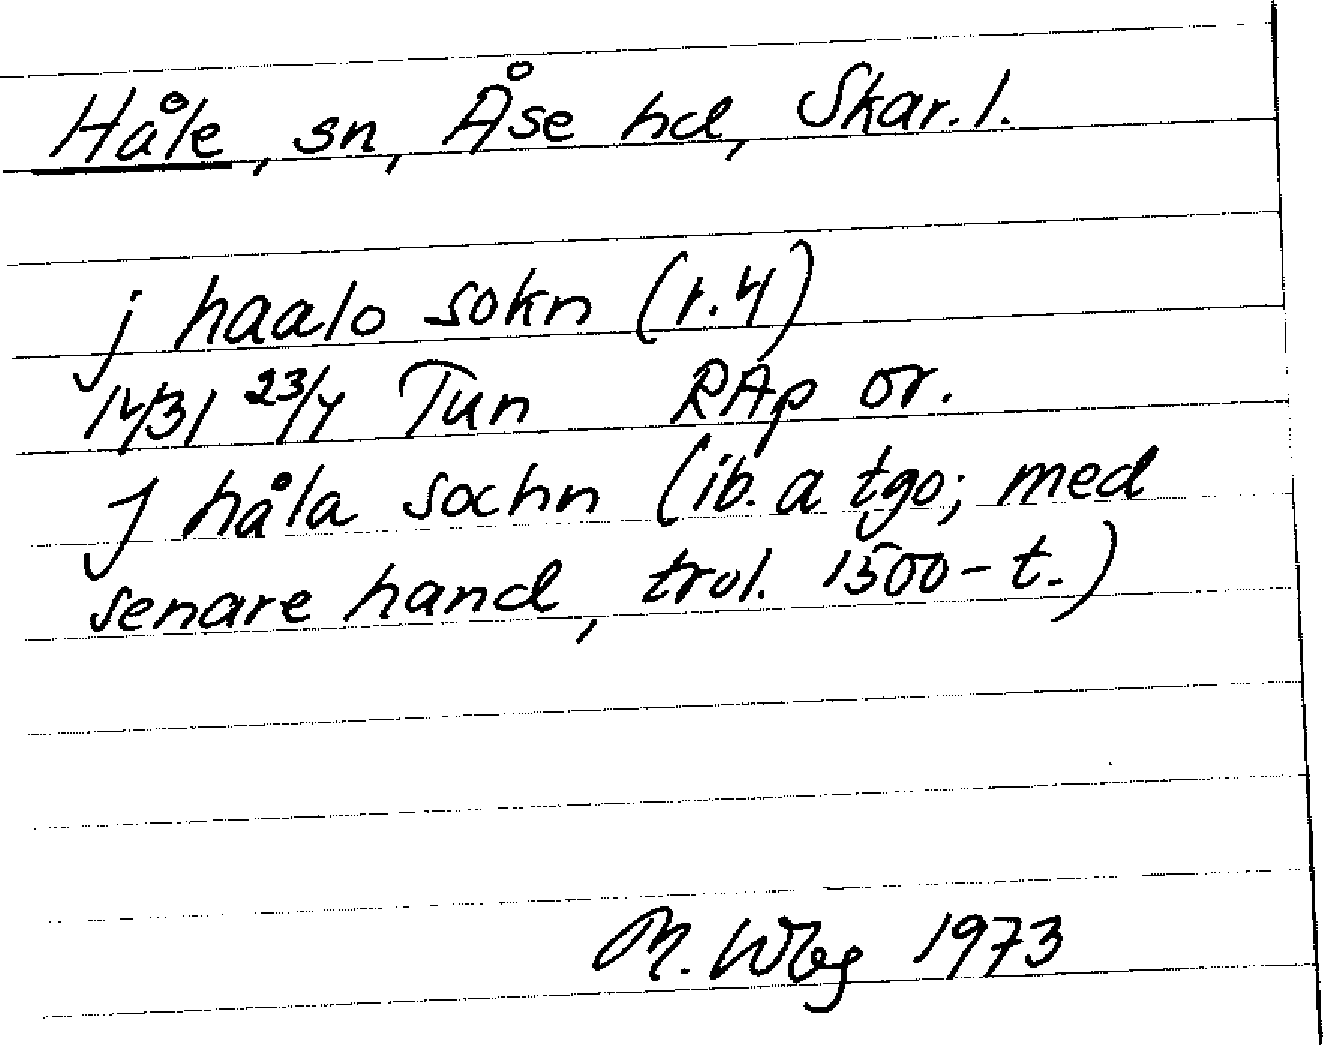 Håle, sn, Åse hd, Skar. l.
j haalo sokn (r.4)
1431 23/4 Tun RAp or.
J håla sochn (ib. a tgo; med
senare hand, trol. 1500-t.)
M. Wbg 1973